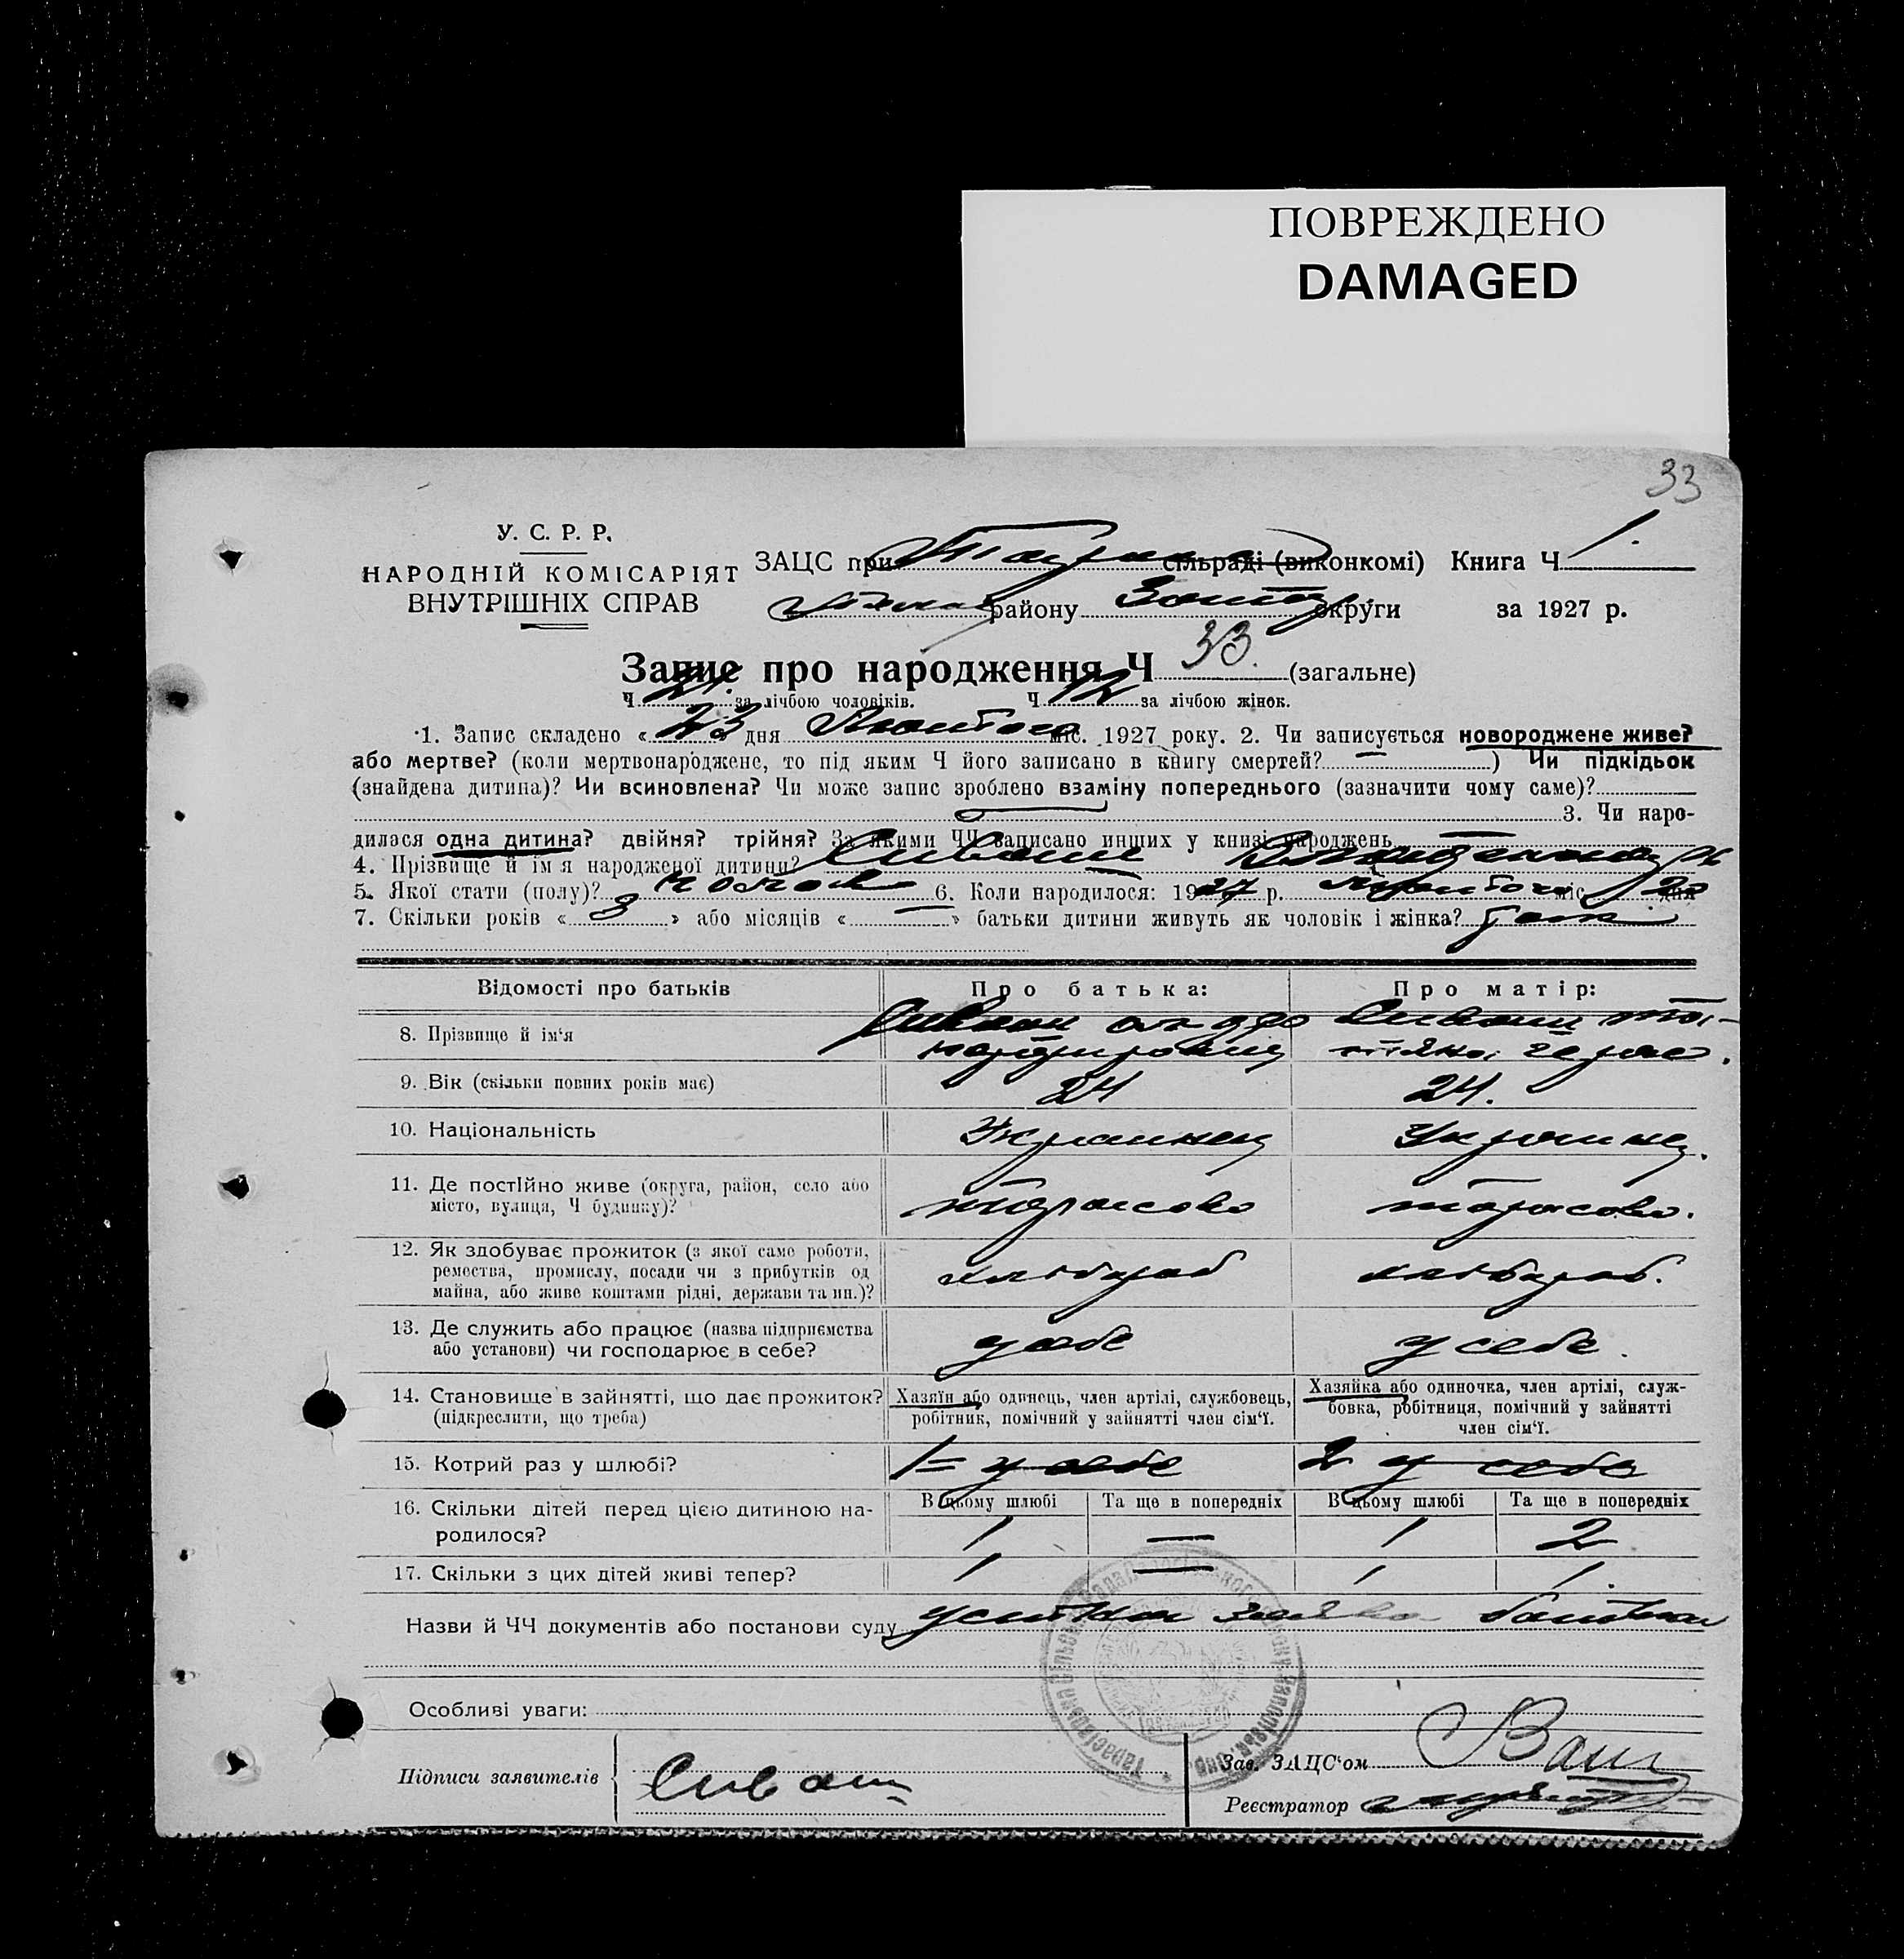 ПОВРЕЖДЕНО
DAMAGED
33
У. С. Р. Р.
НАРОДНІЙ КОМІСАРІЯТ
ВНУТРІШНІХ СПРАВ
ЗАЦС при сільраді (виконкомі) Книга Ч 1.
району округи за 1927 р.
Запис про народження Ч 33. (загальне)
Ч 21. за лічбою чоловіків. Ч 12 за лічбою жінок.
1. Запис складено « 23 » дня Лютого міс. 1927 року. 2. Чи записується новороджене живе?
або мертве? (коли мертвонароджене, то під яким Ч його записано в книгу смертей? — ) Чи підкідьок
(знайдена дитина)? Чи всиновлена? Чи може запис зроблено взаміну попереднього (зазначити чому саме)?
3. Чи наро-
дилася одна дитина? двійня? трійня? За якими ЧЧ записано инших у книзі народжень —
4. Прізвище й ім'я народженої дитини? Сиваш
5. Якої стати (полу)? 6. Коли народилося: 1927 р. Лютого міс. 20 дня
7. Скільки років « 3 » або місяців « — » батьки дитини живуть як чоловік і жінка?
Відомості про батьків
Про батька:
Про матір:
8. Прізвище й ім'я
Сиваш Сиваш та-
тяна
9. Вік (скільки повних років має)
24 24.
10. Національність
Українец Украинец.
11. Де постІйно живе (округа, район, село або
місто, вулиця, Ч будинку)?
тарасовка тарасовка.
12. Як здобуває прожиток (з якої саме роботи,
ремества, промислу, посади чи з прибутків од
майна, або живе коштами рідні, держави та ин.)?
хлібороб хлібороб.
13. Де служить або працює (назва підприємства
або установи) чи господарює в себе?
у себе у себе.
14. Становище в зайнятті, що дає прожиток?
(підкреслити, що треба)
Хазяїн або одинець, член артілі, службовець,
робітник, помічний у зайнятті член сім'ї.
Хазяйка або одиночка, член артілі, служ-
бовка, робітниця, помічний у зайнятті
член сім'ї.
15. Котрий раз у шлюбі?
1 у себе 2 у себе
16. Скільки дітей перед цією дитиною на-
родилося?
В цьому шлюбі Та ще в попередніх В цьому шлюбі Та ще в попередніх
1 — 1 2
17. Скільки з цих дітей живі тепер?
1 — 1 1.
Назви й ЧЧ документів або постанови суду усная заява батька
Особливі уваги:
Підписи заявителів Сиваш
Зав. ЗАЦС'ом
Реєстратор